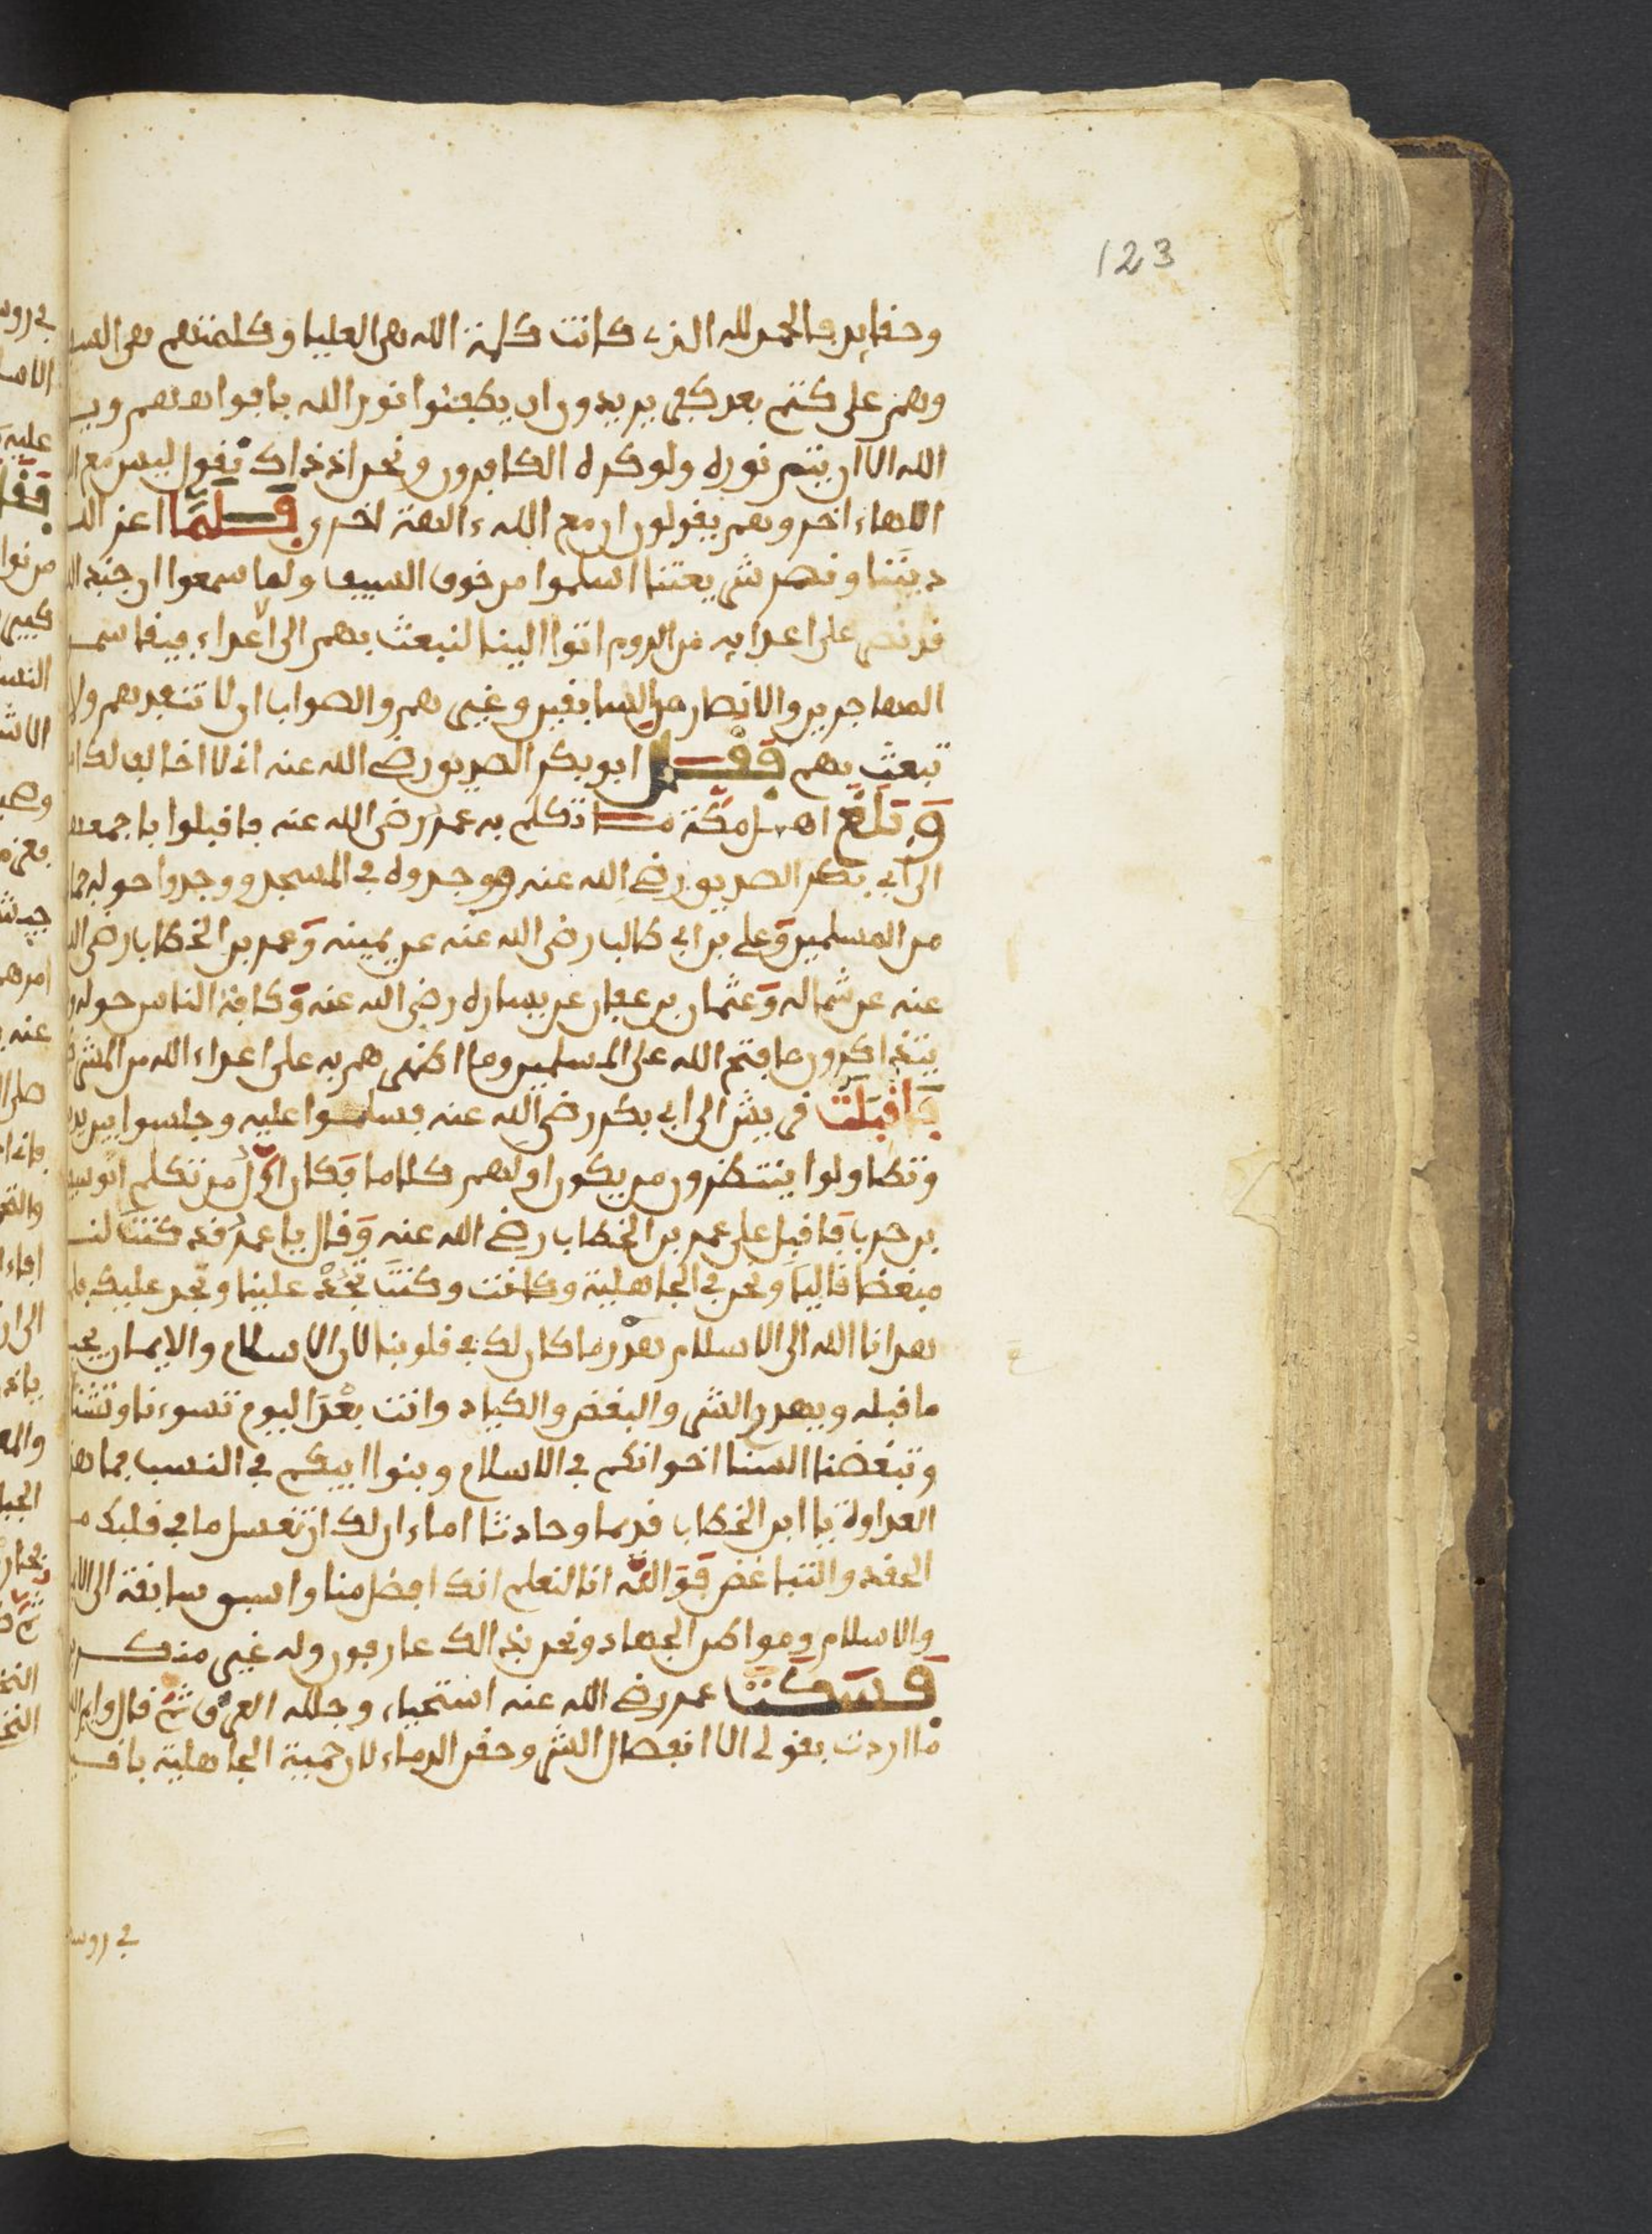 123
وحقايد فالحمد لله الذي كانت كلمة الله هي العليا وكلمتهم هي السـ
وهم على كتم بعد كفى يريدون ان يطفئوا نور الله بافواههم ويـ
الله الا ان يتم نوره ولو كره الكافرون ونحن اذ ذاك نقول ليس مع ا
الاهاء اخر وهم يقولون ان مع الله ءالهة اخرى فلما اعز الله
ديننا ونصر شريعتنا اسلموا من خوف السيف ولما سمعوا ان جند الله
قد نصر على اعدايه من الروم اتوا الينا لنبعث بهم الى الاعداء فيقاسمـ
المهاجرين والانصار من السابقين وغيرهم والصواب ان لا تنفدهم ولا
تبعث بهم فقال ابو بكر الصديق رضي الله عنه اني لا اخالف لك ا
وبلغ اهل مكة ما تكلم به عمر رضي الله عنه فاقبلوا باجمعهم
الى ابي بكر الصديق رضي الله عنه فوجدوه في المسجد ووجدوا حوله جما
من المسلمين وعلي بن ابي طالب رضي الله عنه عن يمينه وعمر بن الخطاب رضي الله
عنه عن شماله وعثمان بن عفان عن يساره رضي الله عنه وكافة الناس حوله
يتذاكرون ما فتح الله على المسلمين وما اظهرهم به على اعداء الله من المشر
فاقبلت قريش الى ابي بكر رضي الله عنه فسلموا عليه وجلسوا بين يد
وتطاولوا ينتظرون من يكون اولهم كلاما فكان اول من تكلم ابو سفيـ
بن حرب فاقبل على عمر بن الخطاب رضي الله عنه وقال يا عمر قد كنت لنـ
مبغضا قاليا ونحن في الجاهلية وكانت وكنت تحد علينا ونحد عليك فلما
هدانا الله الى الاسلام هدر ما كان لك في قلوبنا لان الاسلام والايمان يجب
ما قبله ويهدر الشر والبغض والكياد وانت بعد اليوم تسوءنا وتشنا
وتبغضنا السنا اخوانكم في الاسلام وبنوا ابيكم في النسب فما هذ
العداوة يا ابن الخطاب قديما وحادثا اما ءان لك ان تغسل ما في قلبك مـ
الحقد والتباغض فوالله انا لنعلم انك افضل منا واسبق سابقة الى الا
والاسلام ومواطن الجهاد ونحن بذالك عارفون وله غير منكرين
فسكت عمر رضي الله عنه استحياء وجلله العرق ثم قال وايم الله
ما اردت بقولي الا انفصال الشر وحقن الدماء لان حمية الجاهلية باقيـ
في روسـ